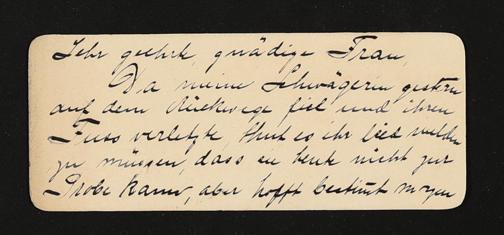 Sehr geehrte, gnädige Frau,
Da meine Schwägerin gestern
auf dem Rückwege fiel und ihren
Fuss verletzte, thut es ihr leid melden
zu müssen, dass sie heute nicht zur
Probe kann, aber hofft bestimt morgen